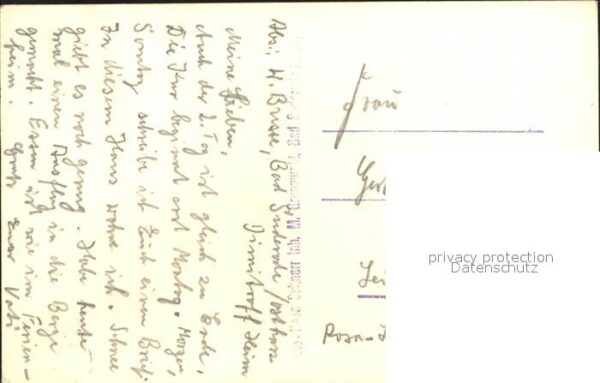 Abs.: H. Busse, Bad Suderode Ostharz
Dimitroff Heim
Meine Lieben,
Auch der 2. Tag ist gleich zu Ende.
Die Kur beginnt erst Montag. Morgen,
Sonntag schreibe ich Euch einen Brief.
In diesem Haus wohne ich. Schnee
giebt es noch genug. Habe heute
mal einen Ausflug in die Berge
gemacht. Essen ist wie im Ferien-
heim. Gruß Euer Vati
Frau
Ger
Lei
Rosa-
privacy protection
Datenschutz